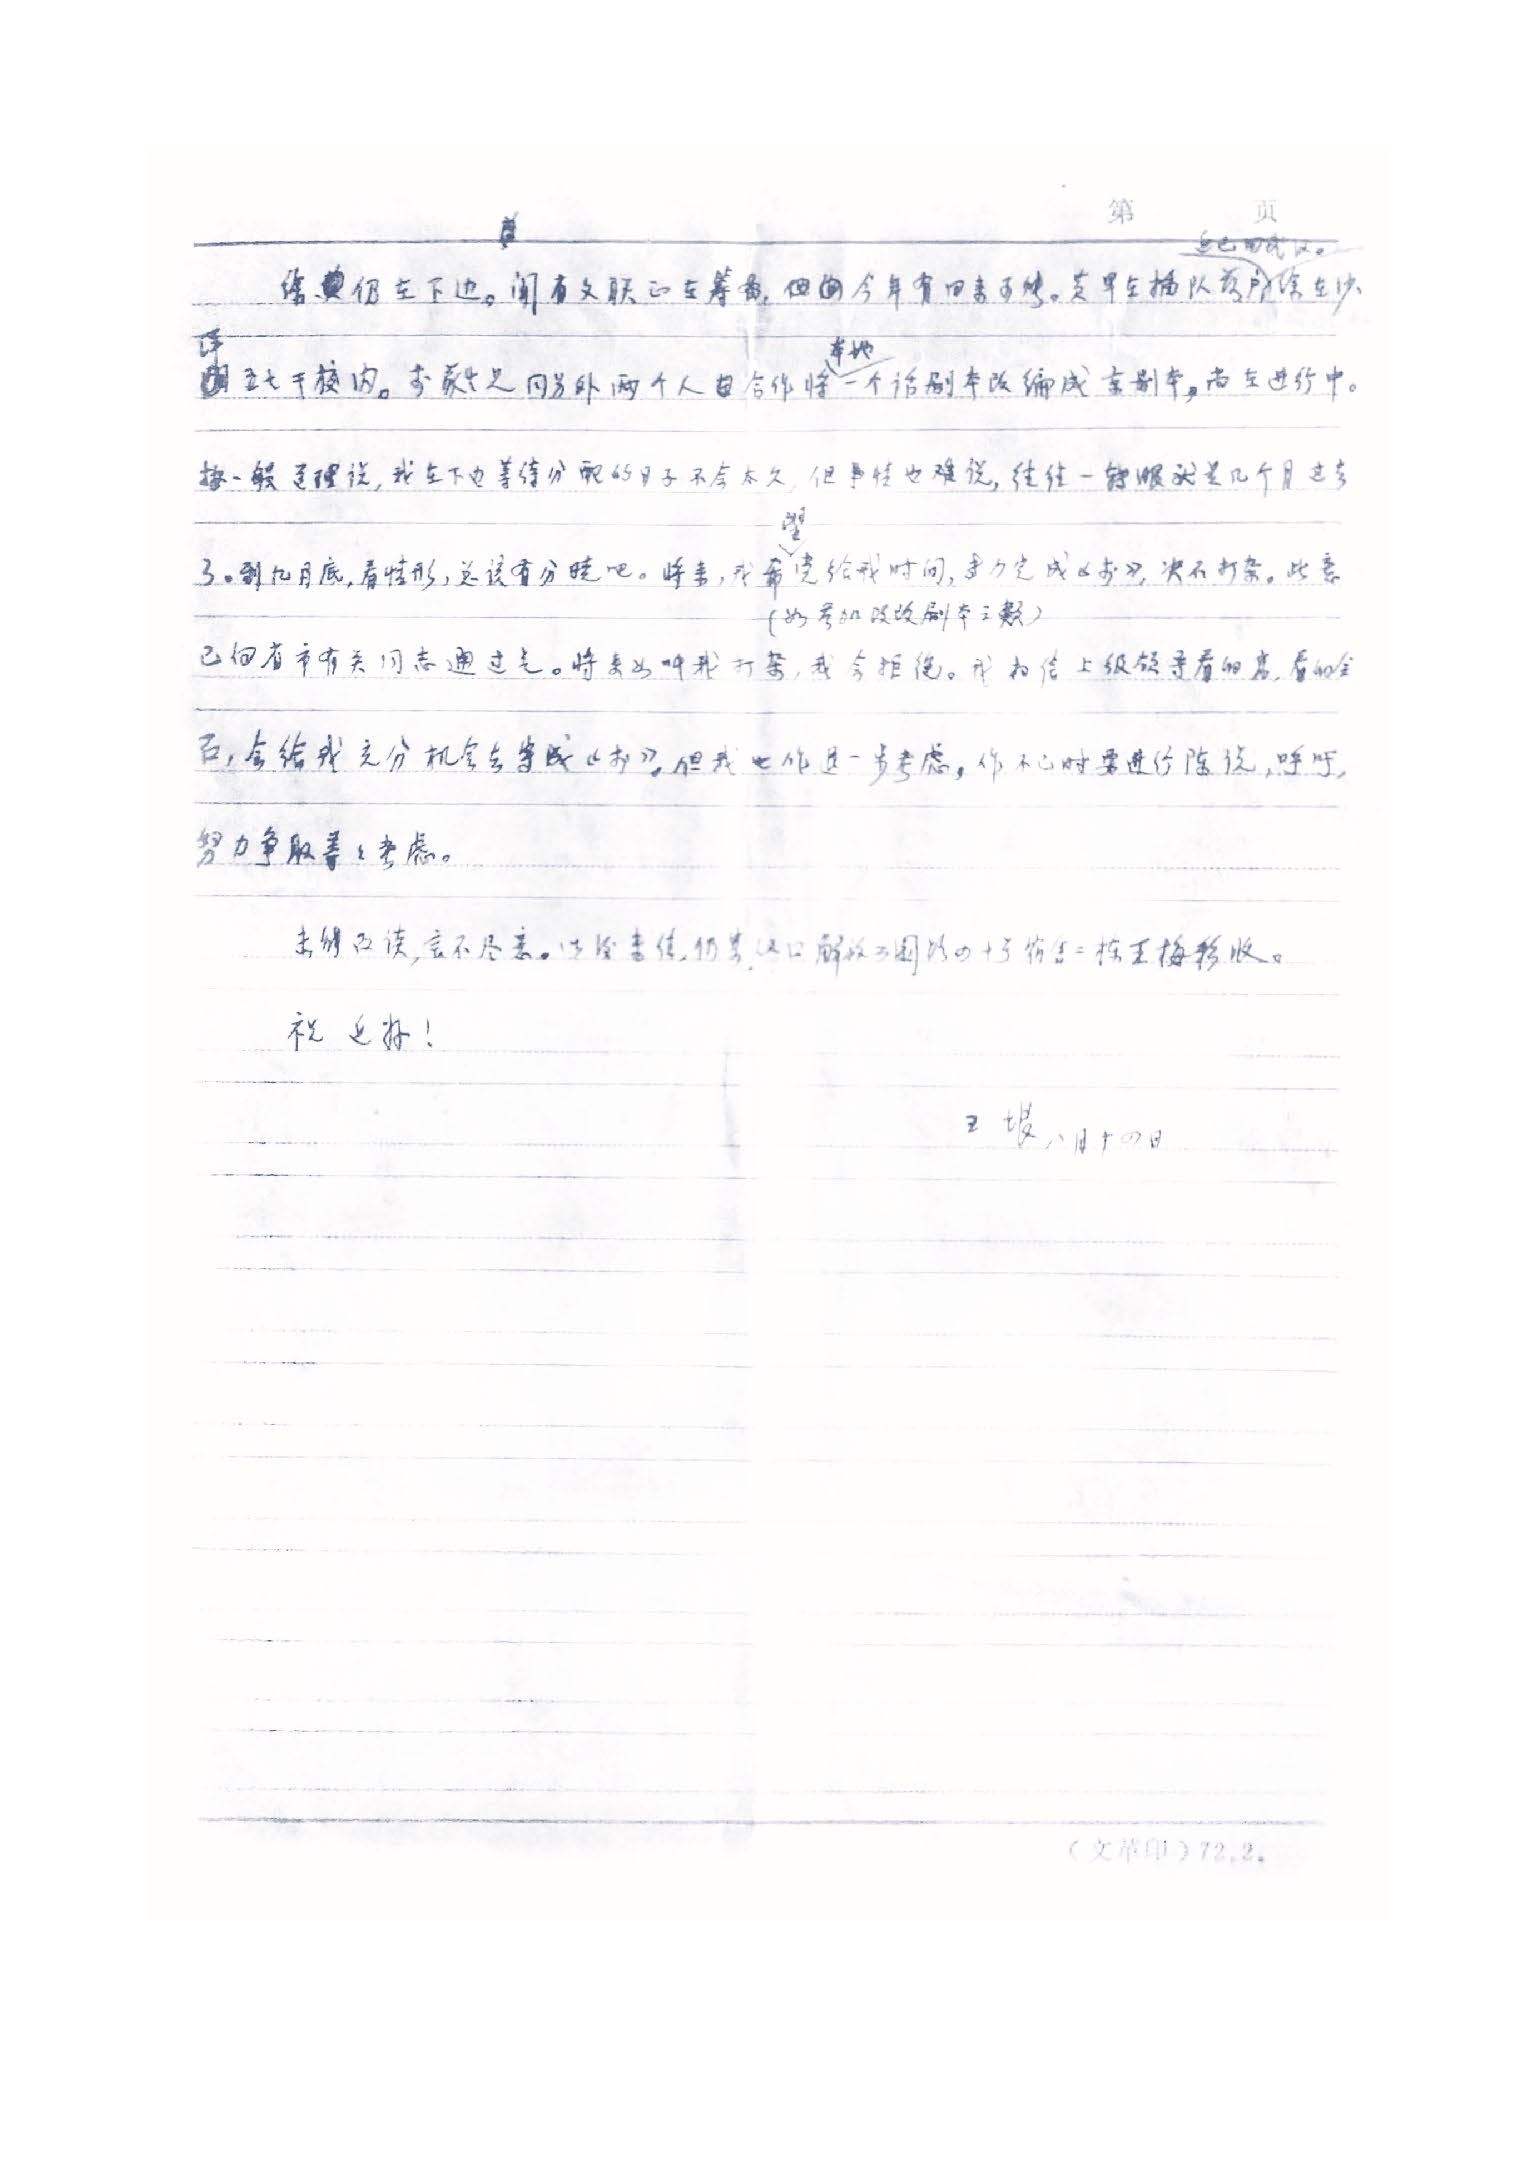 第 页
近已回武汉。
仍在下边。闻省文联正在筹备,但 今年有回来可能。 早在插队落户, 在沙
洋
五七干校内。 同另外两个人 合作将一个话剧本改编成京剧本,尚在进行中。
本地
按一般道理说,我在下边等待分配的日子不会太久,但事情也难说,往往一转眼就是几个月过去
望
了。到九月底,看情形,总该有分晓吧。将来,我希 党给我时间, 力完成《李》,决不打杂。此意
(如参加改改剧本之类)
已向省市有关同志通过气。将来如叫我打杂,我会拒绝。我相信上级领导看的高,看的全
面,会给我充分机会去完成《李》。但我也作进一步考虑,作不已时要进行陈说,呼吁,
努力争取 考虑。
未能改读,言不尽意。以后来信,仍 汉口解放公园路四十号宿舍二栋王梅彩收。
祝 近好!
王 八月十四日
(文革印)72.2。